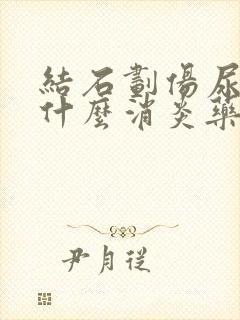 結石劃傷尿
什麼消炎藥
尹月從